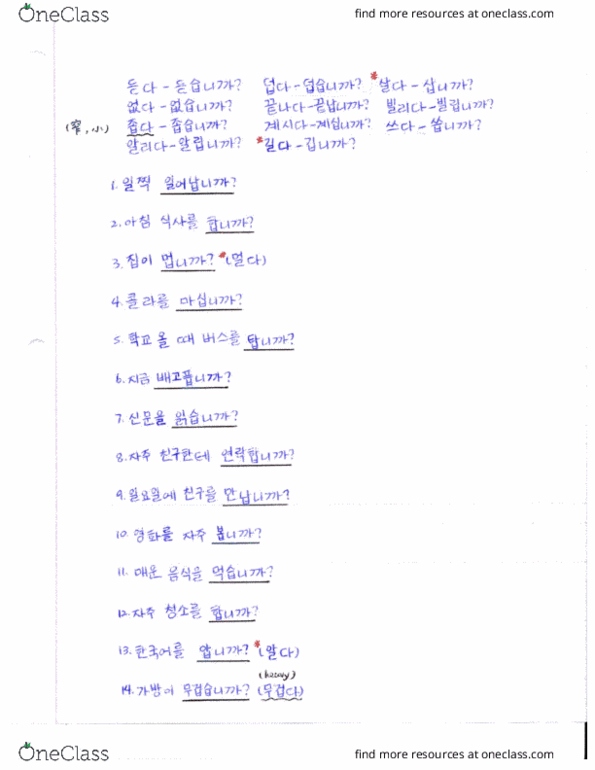 OneClass
find more resources at oneclass.com
듣다 - 듣습니까? 덥다 - 덥습니까? *살다 - 삽니까?
없다 - 없습니까? 끝나다 - 끝납니까? 빌리다 - 빌립니까?
(窄, 小) 좁다 - 좁습니까? 계시다 - 계십니까? 쓰다 - 씁니까?
알리다 - 알립니까? *길다 - 깁니까?
1. 일찍 일어납니까?
2. 아침 식사를 합니까?
3. 집이 멉니까? *(멀다)
4. 콜라를 마십니까?
5. 학교 올 때 버스를 탑니까?
6. 지금 배고픕니까?
7. 신문을 읽습니까?
8. 자주 친구한테 연락합니까?
9. 일요일에 친구를 만납니까?
10. 영화를 자주 봅니까?
11. 매운 음식을 먹습니까?
12. 자주 청소를 합니까?
13. 한국어를 압니까? *(알다)
(heavy)
14. 가방이 무겁습니까? (무겁다)
OneClass
find more resources at oneclass.com